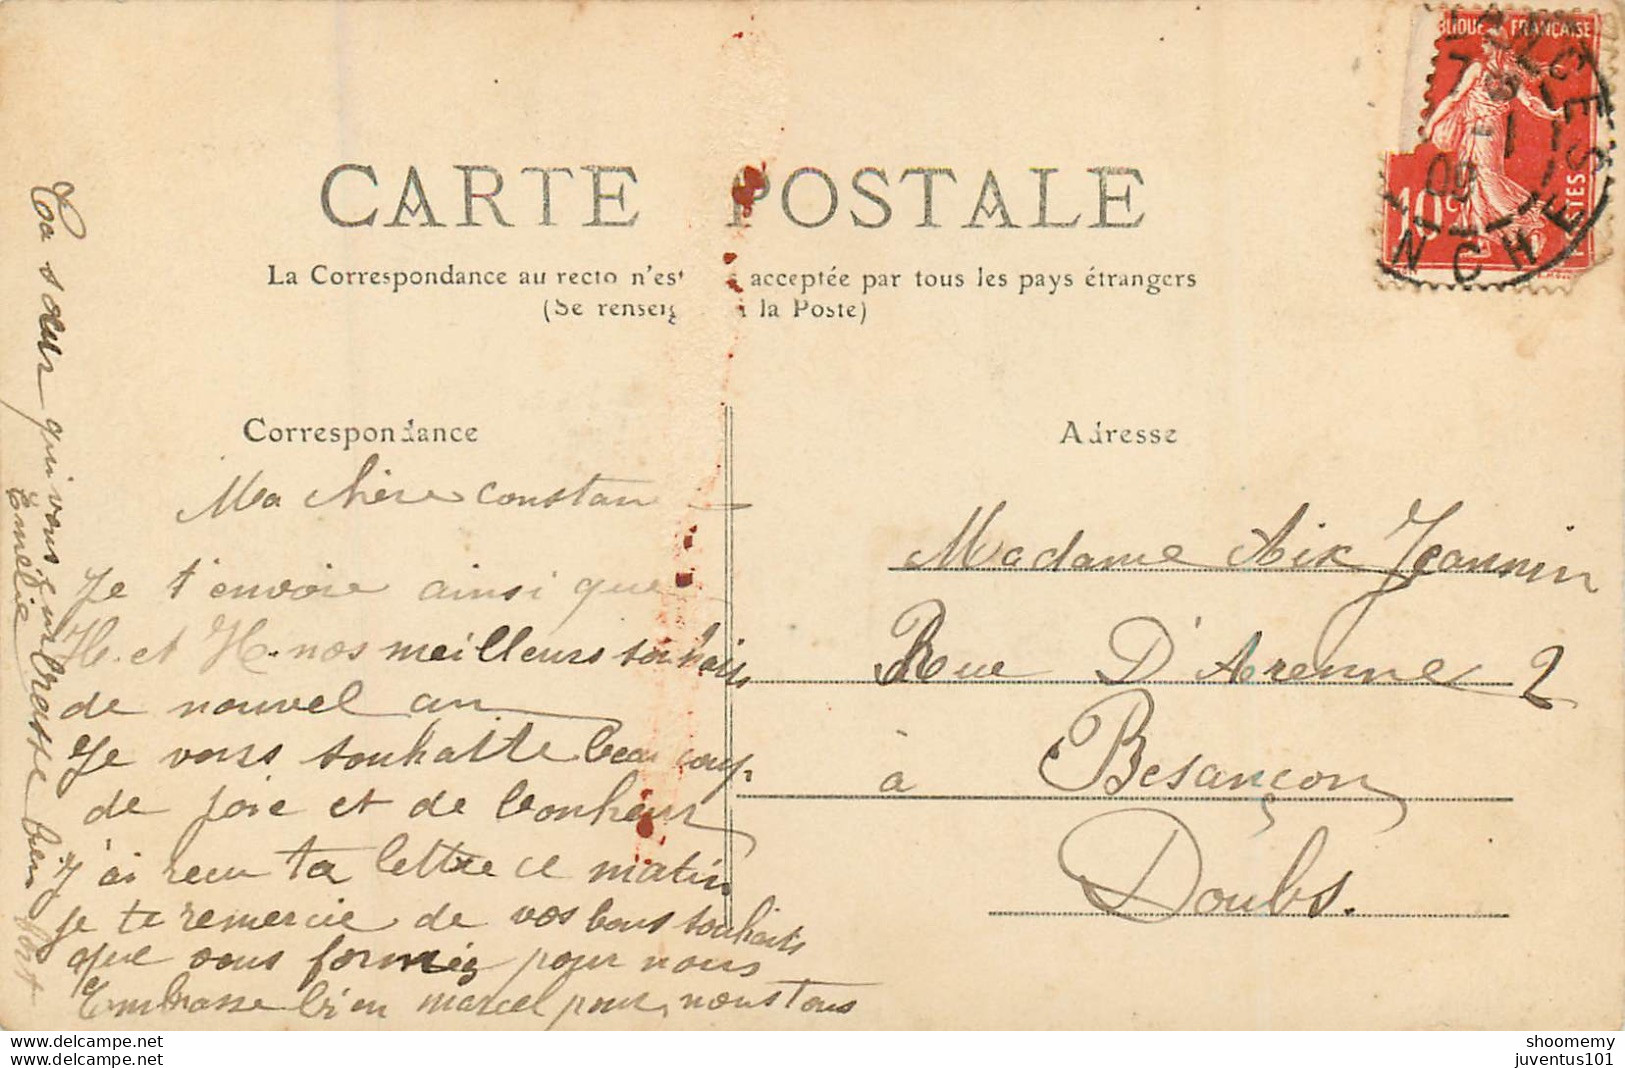 CARTE POSTALE
La Correspondance au recto n'est acceptée par tous les pays étrangers
(Se renseig à la Poste)
Correspondance
Adresse
Ma chère constan
Je t'envoie ainsi que
H. et H. nos meilleurs souhais
de nouvel an
Je vous souhaite beaucoup
de joie et de bonheur
J'ai recu ta lettre ce matin
je te remercie de vos bons souhaits
que vous formez pour nous
Embrasse bien marcel pour nous tous
Ta sœur qui vous embrasse bien fort
Emélie
Madame Aix Jeannin
Rue D'Arenne 2
à Besançon
Doubs.
BLIQUE FRANÇAISE
10 c
POSTES
09
shoomemy
www.delcampe.net
juventus101